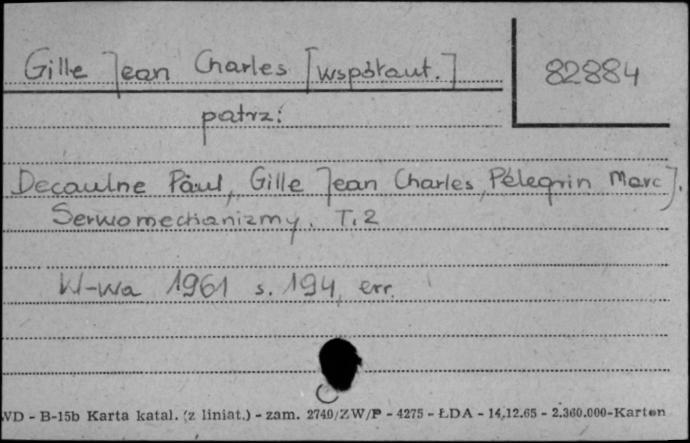 Gille Jean Charles [współaut.]
82884
patrz:
Decaulne Paul, Gille Jean Charles, Pélegrin Marc J.
Serwomechanizmy. T. 2
W-wa 1961 s. 194, err.
WD - B-15b Karta katal. (z liniat.) - zam. 2740/ZW/P - 4275 - ŁDA - 14.12.65 - 2.360.000-Karton